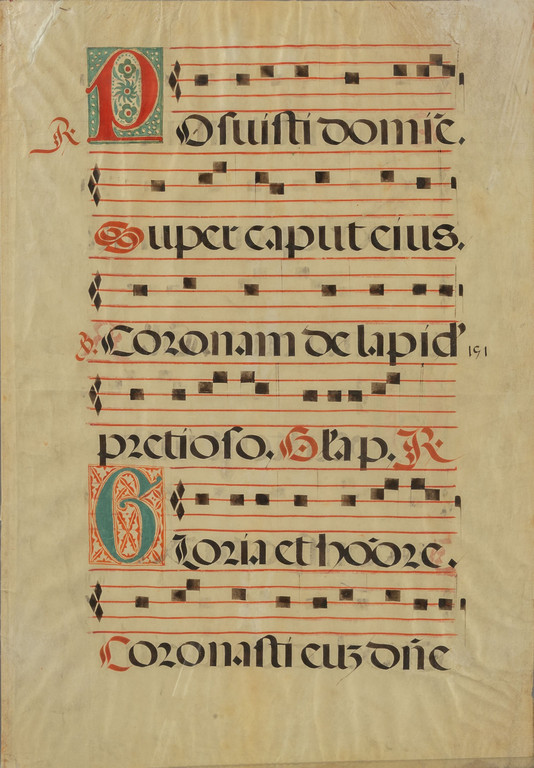 R. Posuisti domīe.
Super caput eius.
V. Coronam de lapid' 151
pretioso. Gl'ap. R.
Gloria et hoōre.
Coronasti euʒ dn̄e